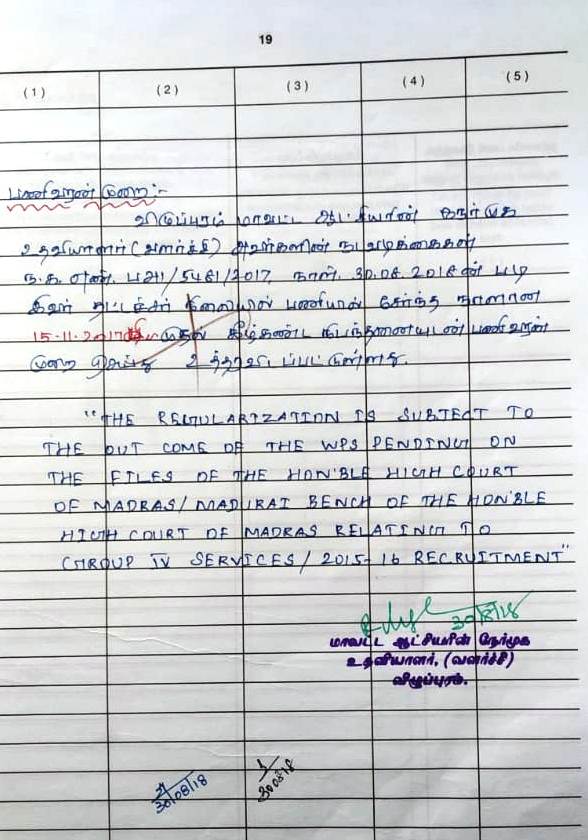 19
(1) (2) (3) (4) (5)
பணிவரன் முறை:-
விழுப்புரம் மாவட்ட ஆட்சியரின் நேர்முக
உதவியாளர் (வளர்ச்சி) அவர்களின் நடவடிக்கைகள்
ந.க. எண். பஅ1/5481/2017, நாள். 30.08.2018ன் படி
இவர் தட்டச்சர் நிலையில் பணியில் சேர்ந்த நாளான
15-11-2017 முதல் கீழ்கண்ட நிபந்தனையுடன் பணிவரன்
முறை செய்து உத்தரவிடப்பட்டுள்ளது.
"THE REGULARIZATION IS SUBJECT TO
THE OUT COME OF THE WPS PENDING ON
THE FILES OF THE HON'BLE HIGH COURT
OF MADRAS/MADURAI BENCH OF THE HON'BLE
HIGH COURT OF MADRAS RELATING TO
GROUP IV SERVICES/2015-16 RECRUITMENT"
30/8/18
மாவட்ட ஆட்சியரின் நேர்முக
உதவியாளர், (வளர்ச்சி)
விழுப்புரம்.
30/08/18
30/08/18